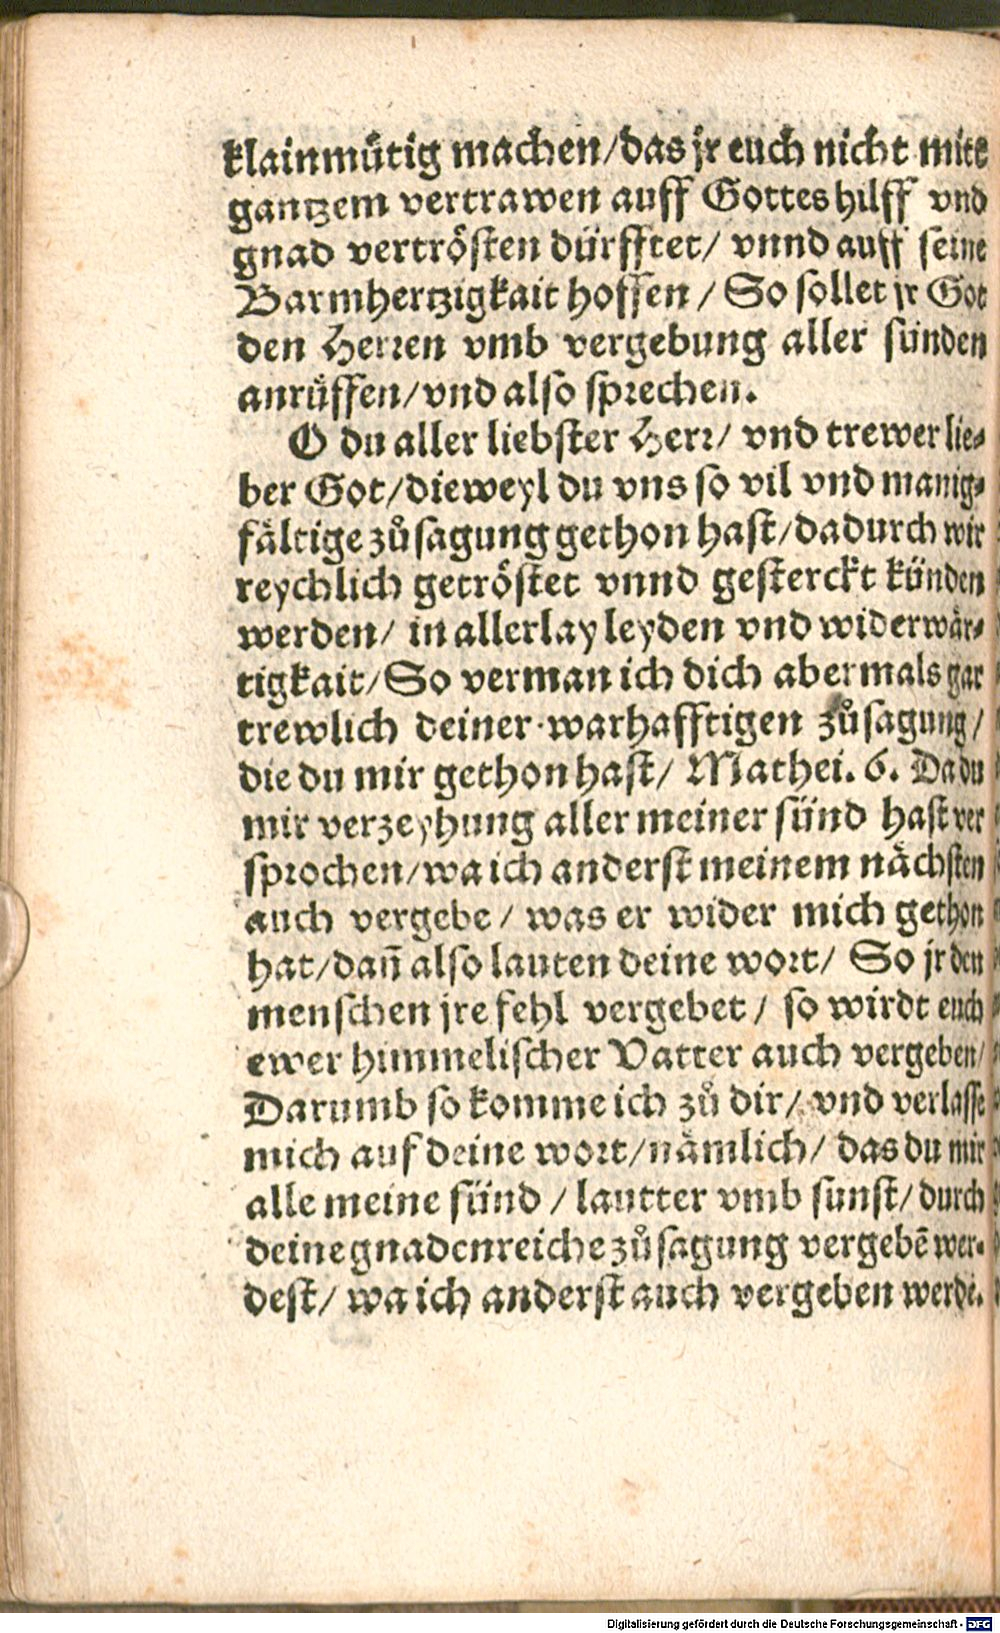 klainmütig machen/das jr euch nicht mitt
gantzem vertrawen auff Gottes hilff vnd
gnad vertrösten dürfftet/ vnnd auff seine
Barmhertzigkait hoffen / So sollet jr Got
den Herren vmb vergebung aller sünden
anrüffen/vnd also sprechen.
O du aller liebster Herr/ vnd trewer lie⸗
ber Got/dieweyl du vns so vil vnd manig⸗
fältige zůsagung gethon hast/dadurch wir
reychlich getröstet vnnd gesterckt künden
werden/ in allerlay leyden vnd widerwär⸗
tigkait/So verman ich dich abermals gar
trewlich deiner warhafftigen zůsagung/
die du mir gethon hast/ Mathei. 6. Da du
mir verzeyhung aller meiner sünd hast ver
sprochen/wa ich anderst meinem nächsten
auch vergebe / was er wider mich gethon
hat/dañ also lauten deine wort/ So jr den
menschen jre fehl vergebet / so wirdt euch
ewer himmelischer Vatter auch vergeben/
Darumb so komme ich zů dir/ vnd verlasse
mich auf deine wort/nämlich/ das du mir
alle meine sünd / lautter vmb sunst/ durch
deine gnadenreiche zůsagung vergebē wer⸗
dest/ wa ich anderst auch vergeben werde.
Digitalisierung gefördert durch die Deutsche Forschungsgemeinschaft - DFG